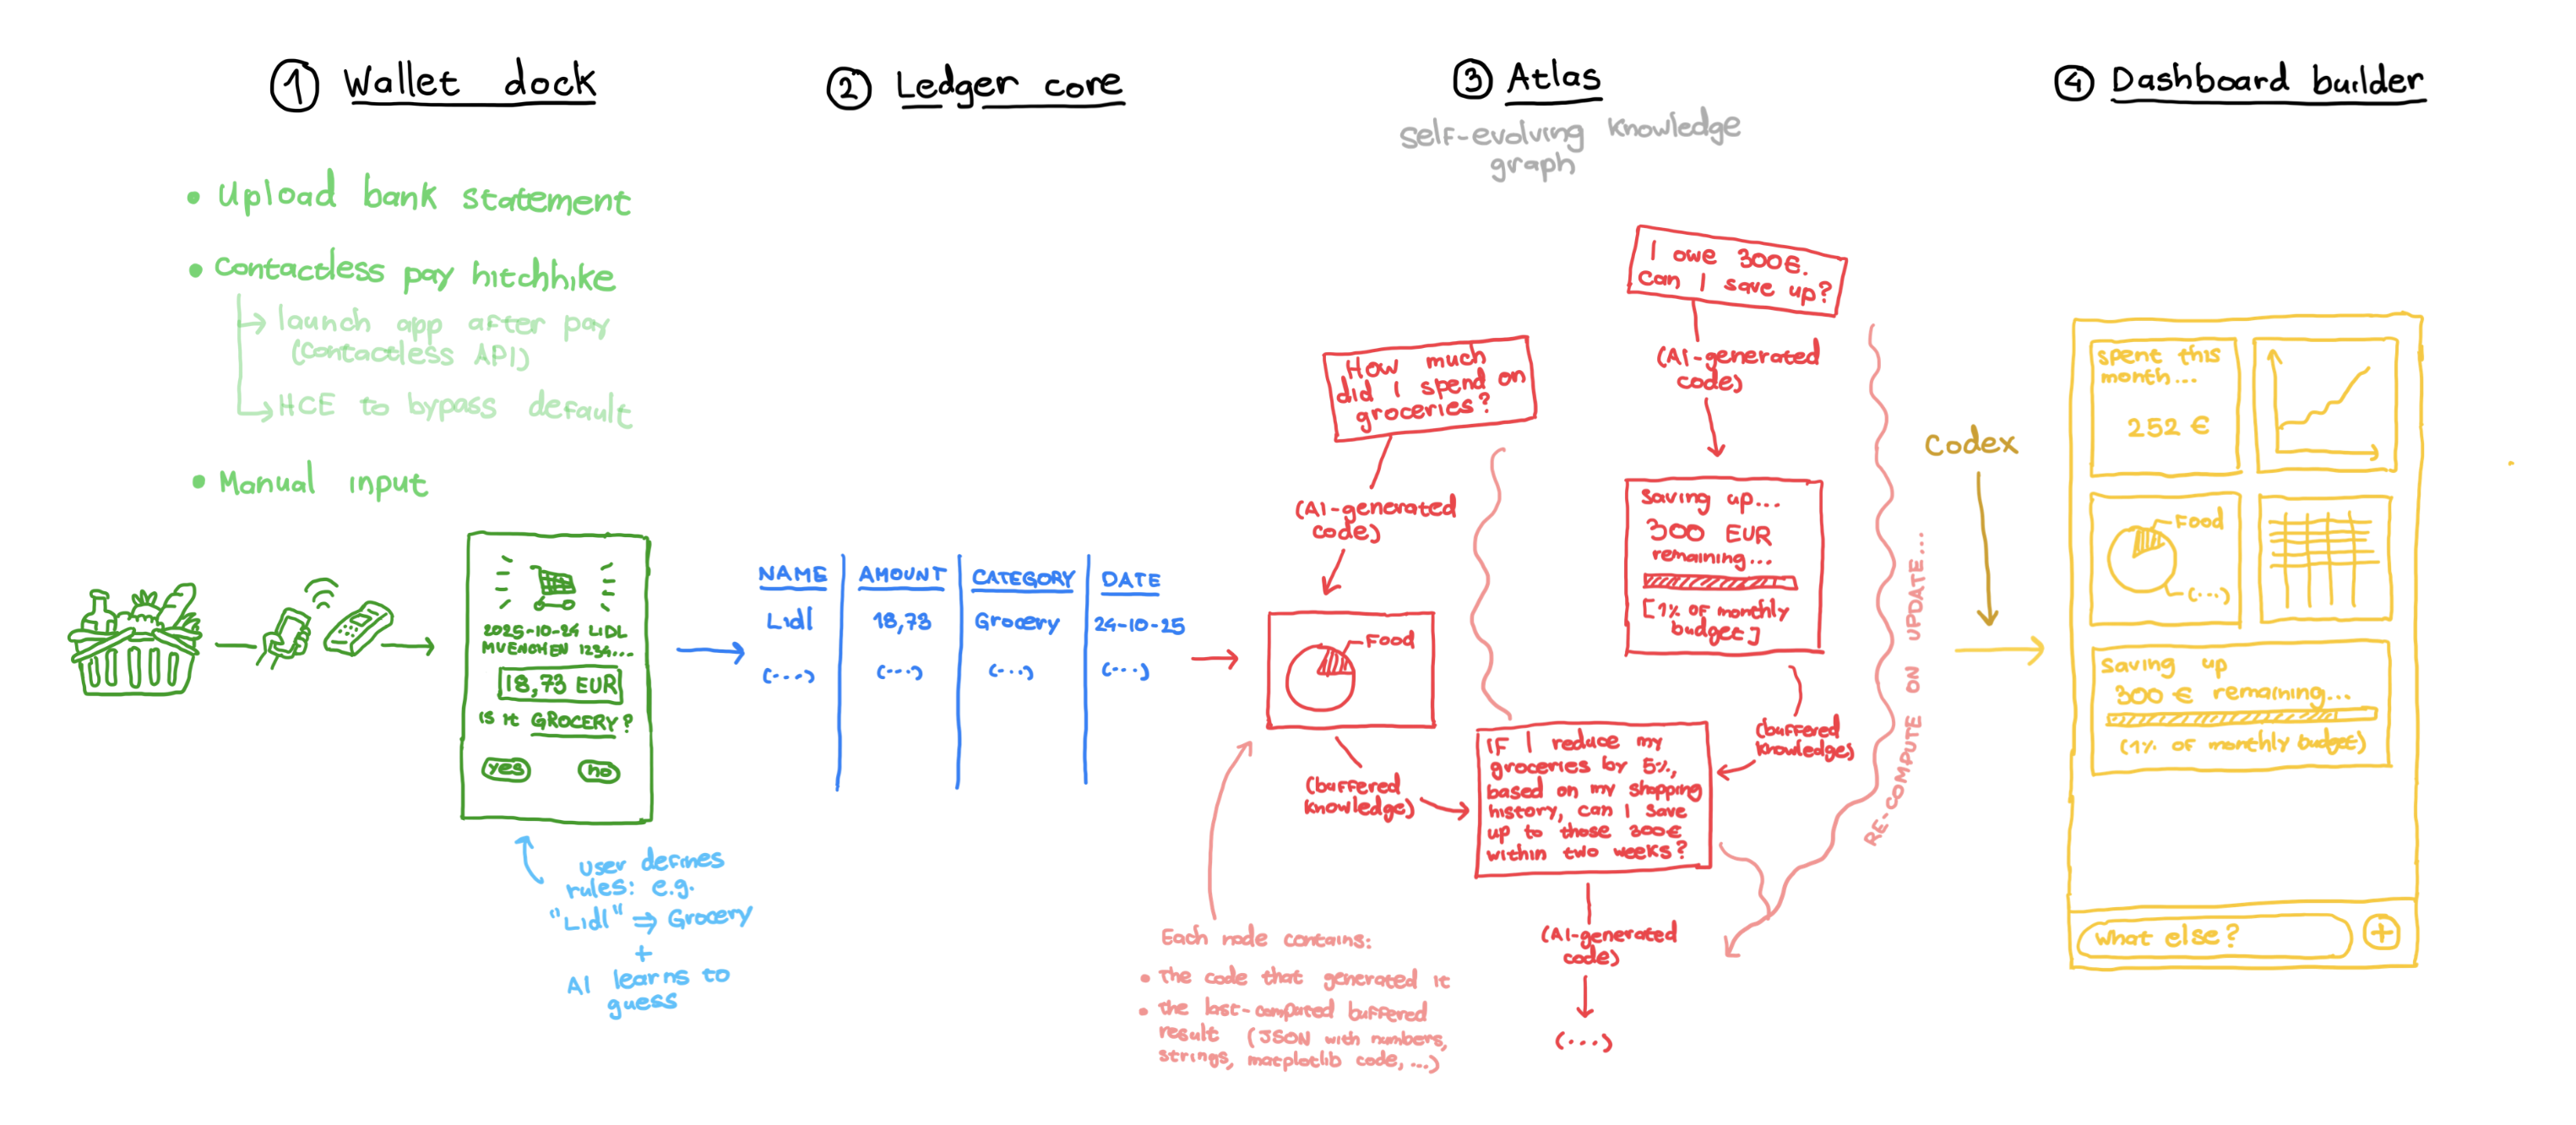 ① Wallet dock
• Upload bank statement
• Contactless pay hitchhike
launch app after pay
(Contactless API)
HCE to bypass default
• Manual input
2025-10-24 LIDL
MUENCHEN 1234...
18,73 EUR
is it GROCERY?
yes
no
user defines
rules: e.g.
"Lidl" ⇒ Grocery
+
AI learns to
guess
② Ledger core
NAME AMOUNT CATEGORY DATE
Lidl 18,73 Grocery 24-10-25
(...) (...) (...) (...)
③ Atlas
self-evolving knowledge
graph
How much
did I spend on
groceries?
(AI-generated
code)
Food
(buffered
knowledge)
I owe 300€.
Can I save up?
(AI-generated
code)
saving up...
300 EUR
remaining...
[1% of monthly
budget]
(buffered
knowledge)
IF I reduce my
groceries by 5%,
based on my shopping
history, can I save
up to those 300€
within two weeks?
(AI-generated
code)
(...)
RE-COMPUTE ON UPDATE...
Each node contains:
• the code that generated it
• the last-computed buffered
result (JSON with numbers,
strings, matplotlib code, ...)
Codex
④ Dashboard builder
spent this
month...
252 €
Food
(...)
saving up
300 € remaining...
(1% of monthly budget)
what else?
+